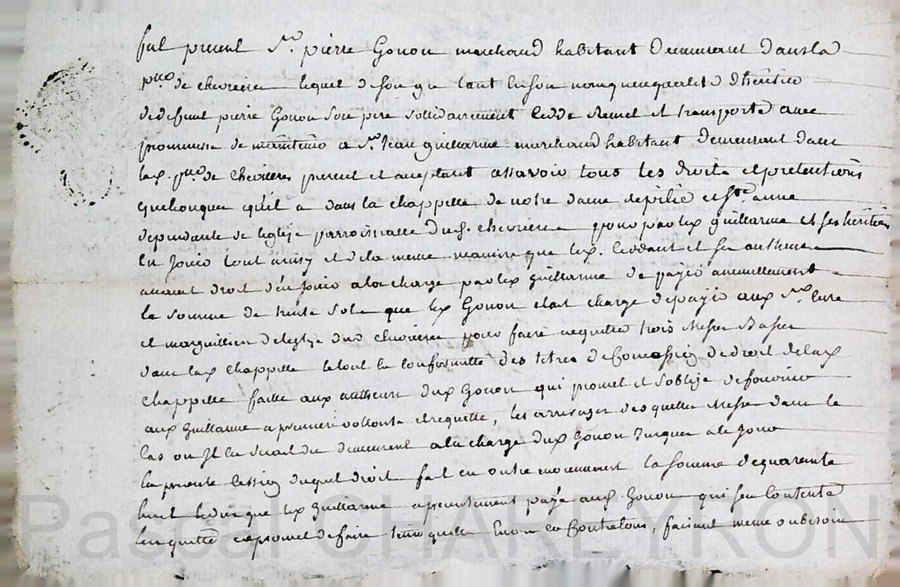 fut présent Sr. pierre Gonon marchand habitant demeurant dans la
psse de chevrieres lequel de son gré tant en son nom que qualité d'héritier
de deffunt pierre Gonon son père solidairement cedde remet et transporte avec
promesse de maintenir a Sr. Jean guillarme marchand habitant demeurant dans
lad. psse de chevrieres present et aceptant assavoir tous les droits et pretentions
quelconques qu'il a dans la chappelle de notre dame de pitié et ste. anne
dependante de l'eglise parroissialle dud. chevrieres pour par led. guillarme et ses héritiers
en jouir tout ainsy et de la meme maniere que led. cedant et ses autheurs
avaient droit d'en jouir a la charge par led. guillarme de payer annuellement
la somme de trente sols que led. Gonon etait chargé de payer aux Srs. curé
et marguilliers de leglise dud. chevrieres pour faire acquitter trois messes basses
dans lad. chappelle le tout en conformité des titres de concession de droit de lad.
chappelle faitte aux autheurs dud. Gonon qui promet et s'oblige de fournir
aud. guillarme a premiere vollonté et requette, les arrerages desquelles messes dans le
cas ou il en serait du demeurent a la charge dud. Gonon jusques a ce jour
la presente cession duquel droit fait en outre moyennant la somme de quarante
huit livres que led. guillarme a presentement payé aud. Gonon qui s'en contente
l'en quitte et promet de faire tenir quitte envers et contre tous, faisant meme au besoin
Pascal CHAREYRON